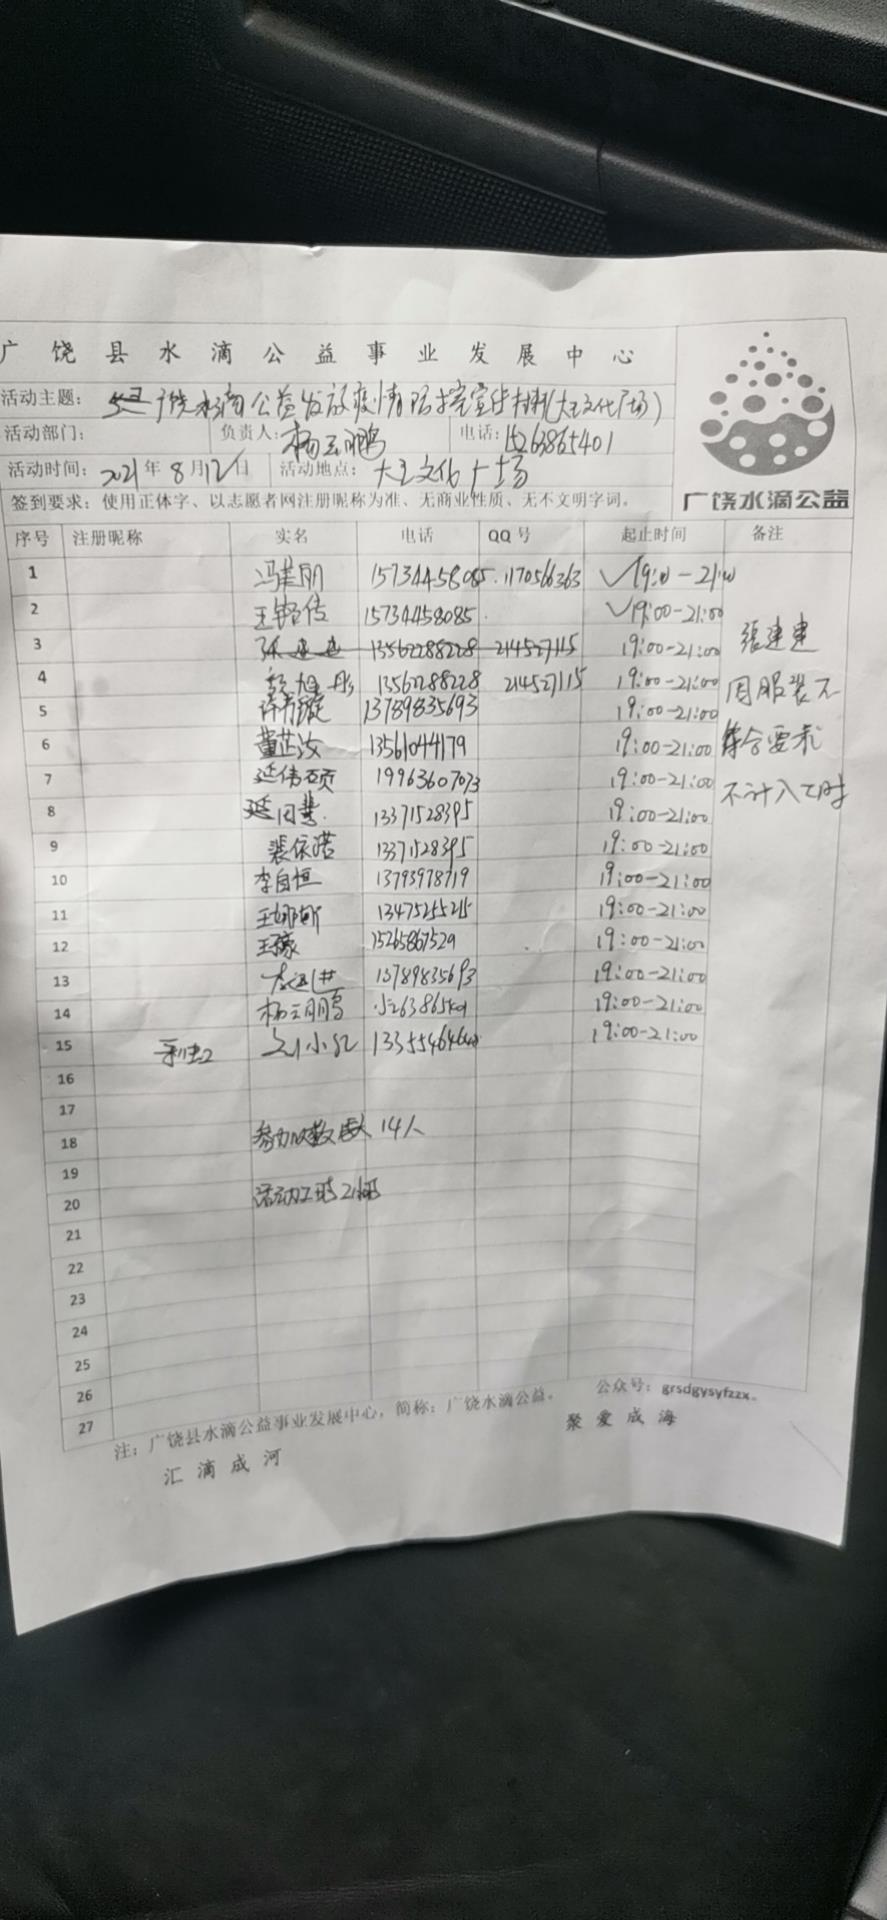 广饶县水滴公益事业发展中心
活动主题：广饶水滴公益发放疫情防控宣传材料(大王文化广场)
活动部门： 负责人：杨云鹏 电话：15263865401
活动时间：2021年8月12日 活动地点：大王文化广场
签到要求：使用正体字、以志愿者网注册昵称为准、无商业性质、无不文明字词。
广饶水滴公益
序号 注册昵称 实名 电话 QQ号 起止时间 备注
1 15734458085 1170566363 √19:00-21:00
2 15734458085 √19:00-21:00
3 张建建 13562288228 214527115 19:00-21:00 张建建
4 13562288228 214527115 19:00-21:00 因服装不
5 13789835693 19:00-21:00
6 董芷汝 13561044179 19:00-21:00 符合要求
7 延伟硕 19963607073 19:00-21:00 不计入工时
8 13371528395 19:00-21:00
9 裴依诺 13371528395 19:00-21:00
10 李自恒 13793978719 19:00-21:00
11 13475255215 19:00-21:00
12 15265867529 19:00-21:00
13 13789835693 19:00-21:00
14 杨云鹏 15263865401 19:00-21:00
15 刘小红 13355464640 19:00-21:00
16
17
18 参加人数 14人
19
20 活动工时2小时
21
22
23
24
25
26
27
注：广饶县水滴公益事业发展中心，简称：广饶水滴公益。 公众号：grsdgysyfzzx。
汇滴成河 聚爱成海